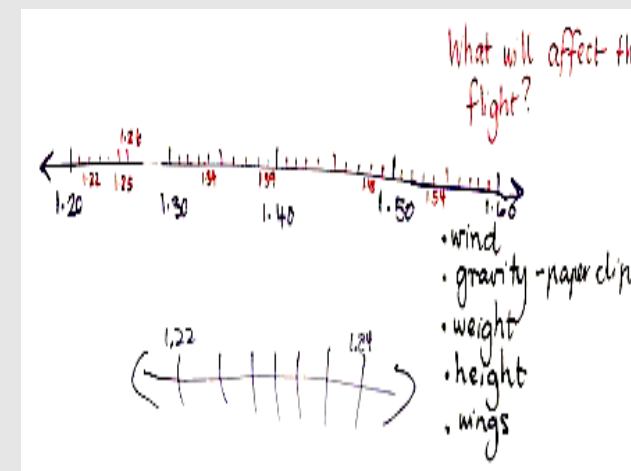 What will affect th
flight?
1.26
1.22 1.25 1.34 1.39 1.48 1.54
1.20 1.30 1.40 1.50 1.60
• wind
• gravity - paper clip
• weight
• height
• wings
1.22 1.24